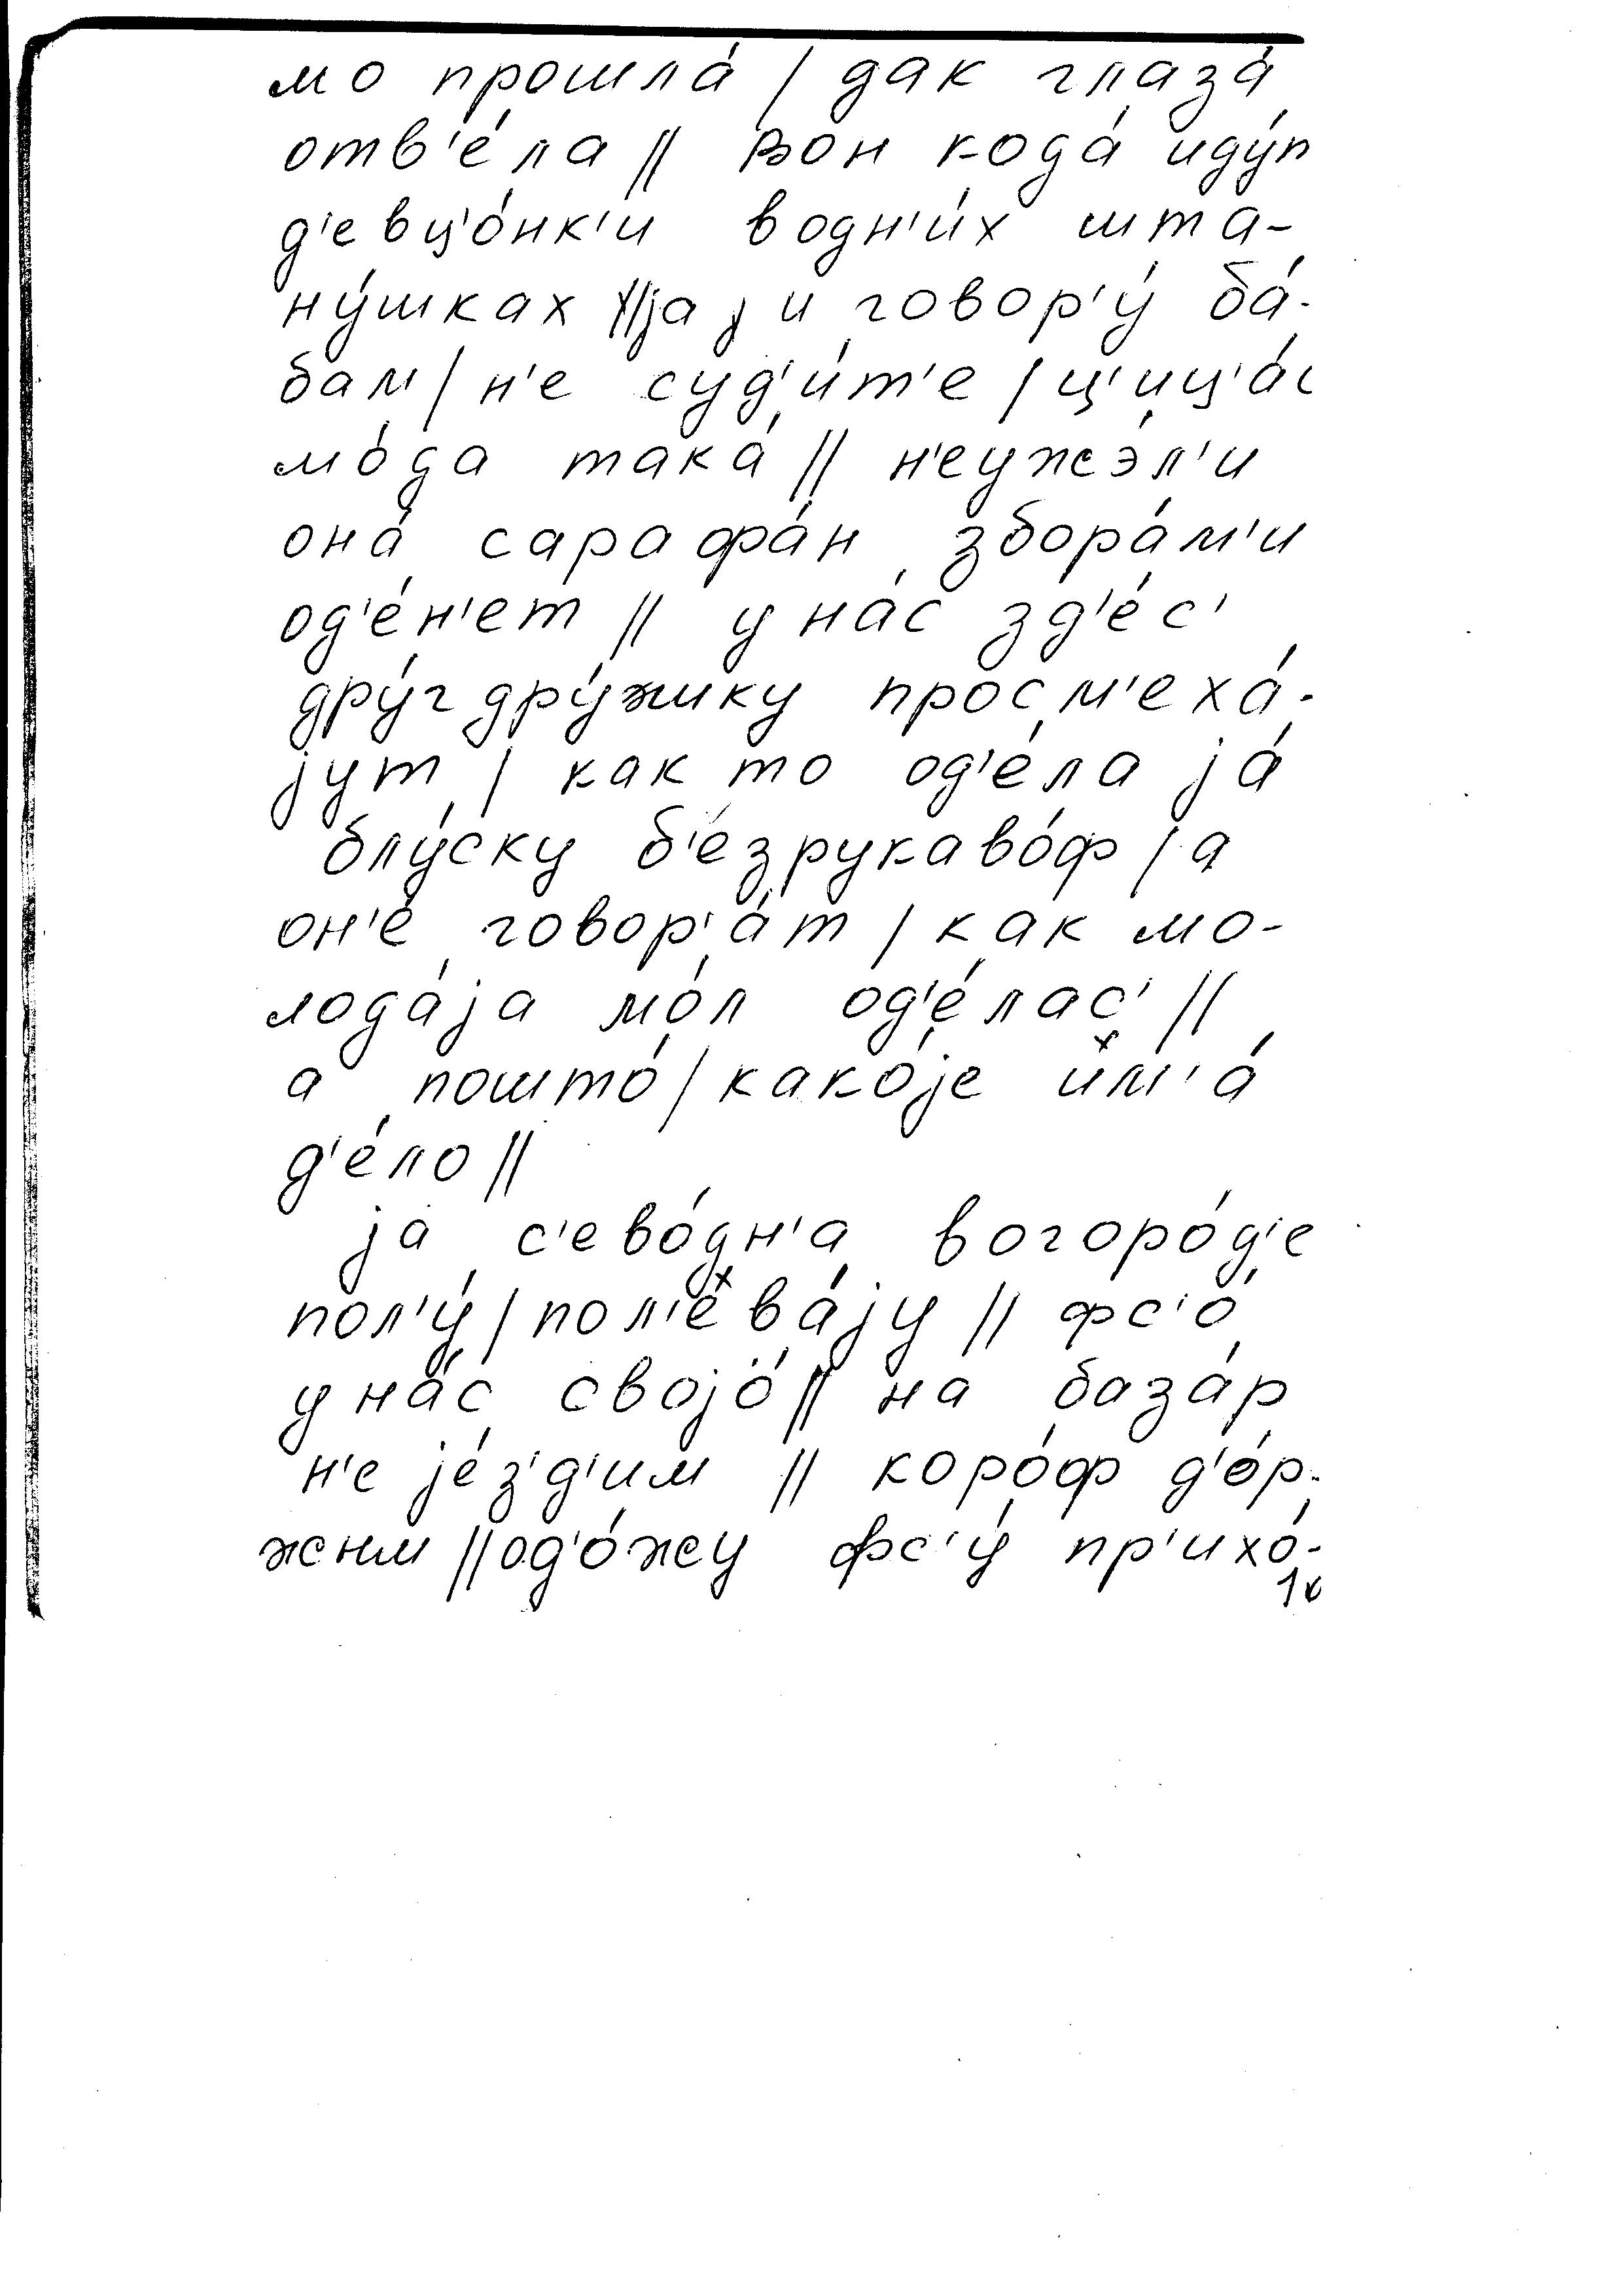 мо прошла́ / дак глаза́
отв'е́ла // вон кода́ иду́т
д'евц'о́нк'и водн'и́х шта-
ну́шках // jа j и говор'у́ ба́-
бам / н'е суд'и́т'е / ц'иц'а́с
мо́да така́ // н'еужэл'и
она́ сарафа́н збора́м'и
од'е́н'ет // у на́с зд'е́с'
дру́г дру́жику просм'еха́-
jут / как то од'е́ла jа́
блу́ску б'езрукаво́ф / а
он'е́ говор'а́т / как мо-
лода́jа мо́л од'е́лас' //
а пошто́ / како́jе им'а́
д'е́ло //
jа с'ево́дн'а вогоро́д'е
пол'у́ / пол'ева́jу // фс'о́
у на́с своjо́ // на база́р
н'е jе́з'д'им // коро́ф д'о́р-
жым // од'о́жу фс'у́ пр'ихо́-